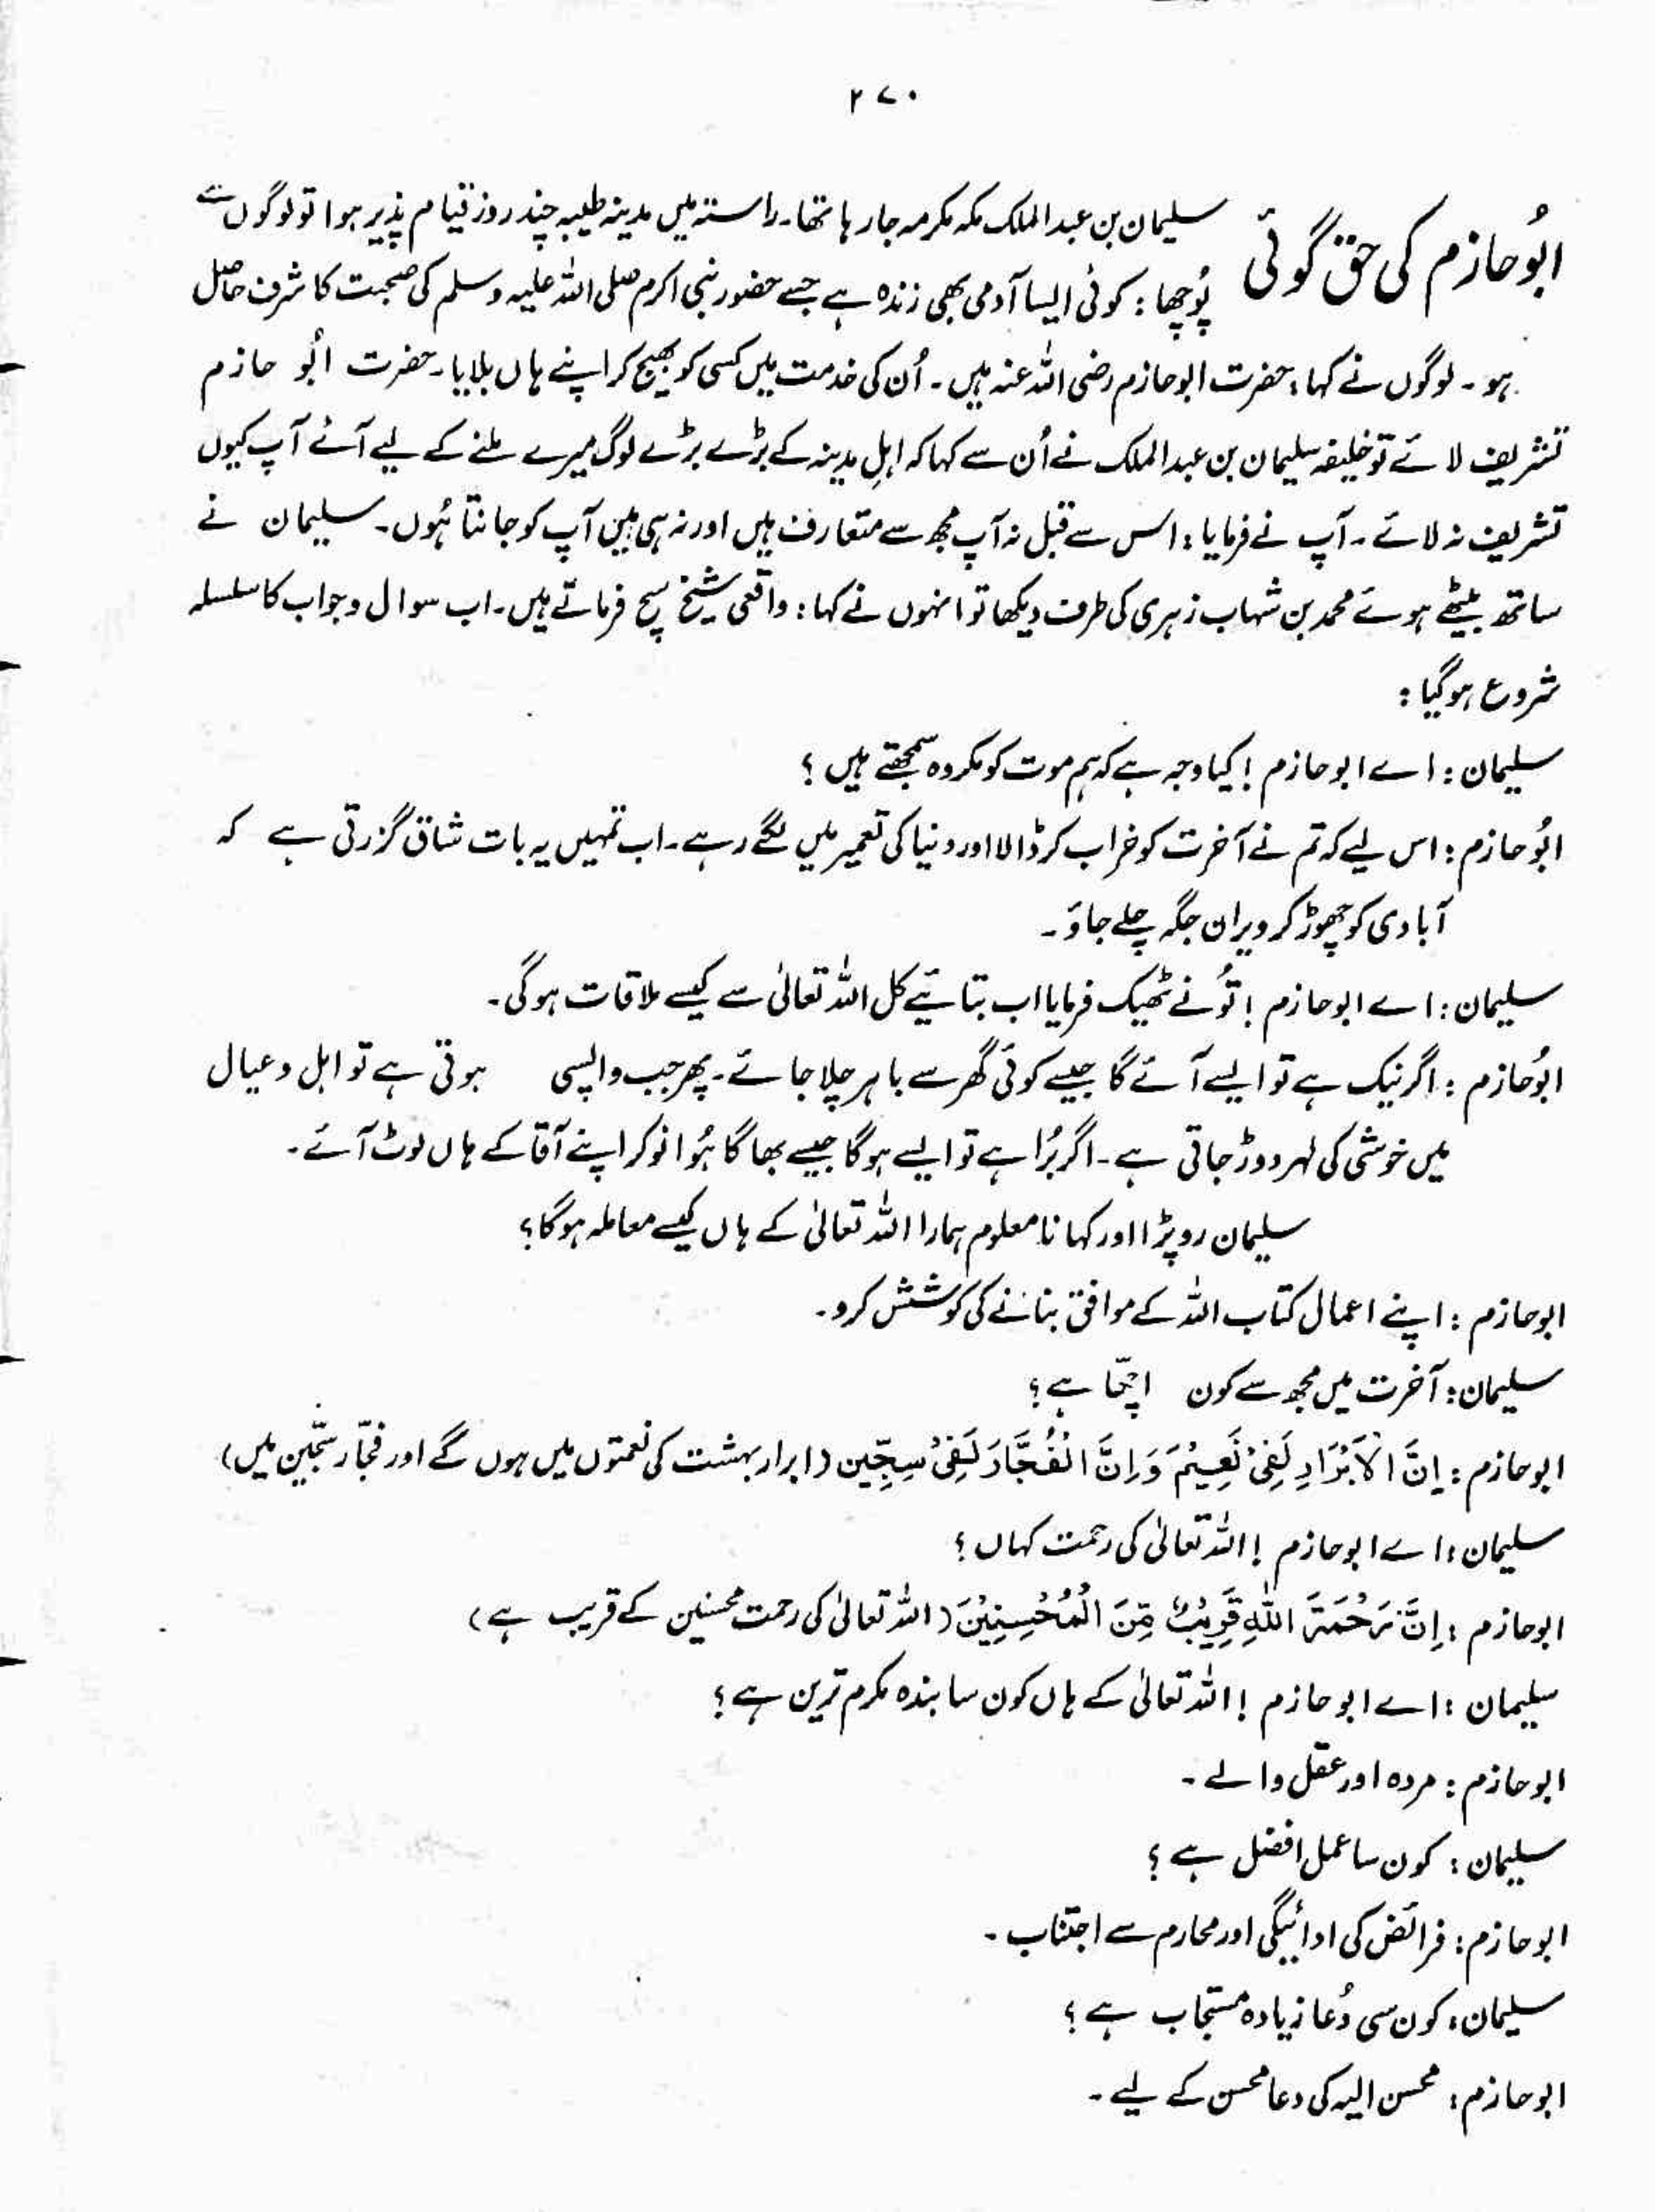 ۲۷۰
ابُوحازم کی حق گوئی سلیمان بن عبدالملک مکہ مکرمہ جا رہا تھا۔ راستہ میں مدینہ طیبہ چند روز قیام پذیر ہوا تو لوگوں سے
پُوچھا : کوئی ایسا آدمی بھی زندہ ہے جسے حضور نبی اکرم صلی اللہ علیہ وسلم کی صحبت کا شرف حاصل
ہو۔ لوگوں نے کہا : حضرت ابوحازم رضی اللہ عنہ ہیں۔ اُن کی خدمت میں کسی کو بھیج کر اپنے ہاں بلایا۔ حضرت ابُو حازم
تشریف لائے تو خلیفہ سلیمان بن عبدالملک نے اُن سے کہا کہ اہلِ مدینہ کے بڑے بڑے لوگ میرے ملنے کے لیے آئے آپ کیوں
تشریف نہ لائے۔ آپ نے فرمایا : اس سے قبل نہ آپ مجھ سے متعارف ہیں اور نہ ہی میں آپ کو جانتا ہُوں۔ سلیمان نے
ساتھ بیٹھے ہوئے محمد بن شہاب زہری کی طرف دیکھا تو انہوں نے کہا : واقعی شیخ سچ فرماتے ہیں۔ اب سوال و جواب کا سلسلہ
شروع ہوگیا :
سلیمان : اے ابوحازم ! کیا وجہ ہے کہ ہم موت کو مکروہ سمجھتے ہیں ؟
ابُوحازم : اس لیے کہ تم نے آخرت کو خراب کر ڈالا اور دنیا کی تعمیر میں لگے رہے۔ اب تمہیں یہ بات شاق گزرتی ہے کہ
آبادی کو چھوڑ کر ویران جگہ چلے جاؤ۔
سلیمان : اے ابوحازم ! تُو نے ٹھیک فرمایا اب بتائیے کل اللہ تعالیٰ سے کیسے ملاقات ہوگی۔
ابُوحازم : اگر نیک ہے تو ایسے آئے گا جیسے کوئی گھر سے باہر چلا جائے۔ پھر جب واپسی ہوتی ہے تو اہل و عیال
میں خوشی کی لہر دوڑ جاتی ہے۔ اگر بُرا ہے تو ایسے ہوگا جیسے بھاگا ہُوا نوکر اپنے آقا کے ہاں لوٹ آئے۔
سلیمان رو پڑا اور کہا نامعلوم ہمارا اللہ تعالیٰ کے ہاں کیسے معاملہ ہوگا؟
ابوحازم : اپنے اعمال کتاب اللہ کے موافق بنانے کی کوشش کرو۔
سلیمان : آخرت میں مجھ سے کون اچھّا ہے؟
ابوحازم : اِنَّ الْاَبْرَارِ لَفِیْ نَعِیْمٍ وَ اِنَّ الْفُجَّارَ لَفِیْ سِجِّین (ابرار بہشت کی نعمتوں میں ہوں گے اور فجّار سجّین میں)
سلیمان : اے ابوحازم ! اللہ تعالیٰ کی رحمت کہاں ؟
ابوحازم : اِنَّ رَحْمَۃَ اللّٰہِ قَرِیْبٌ مِّنَ الْمُحْسِنِیْنَ (اللہ تعالیٰ کی رحمت محسنین کے قریب ہے)
سلیمان : اے ابوحازم ! اللہ تعالیٰ کے ہاں کون سا بندہ مکرم ترین ہے؟
ابوحازم : مردہ اور عقل والے۔
سلیمان : کون سا عمل افضل ہے ؟
ابوحازم : فرائض کی ادائیگی اور محارم سے اجتناب۔
سلیمان : کون سی دُعا زیادہ مستجاب ہے ؟
ابوحازم : محسن الیہ کی دعا محسن کے لیے۔